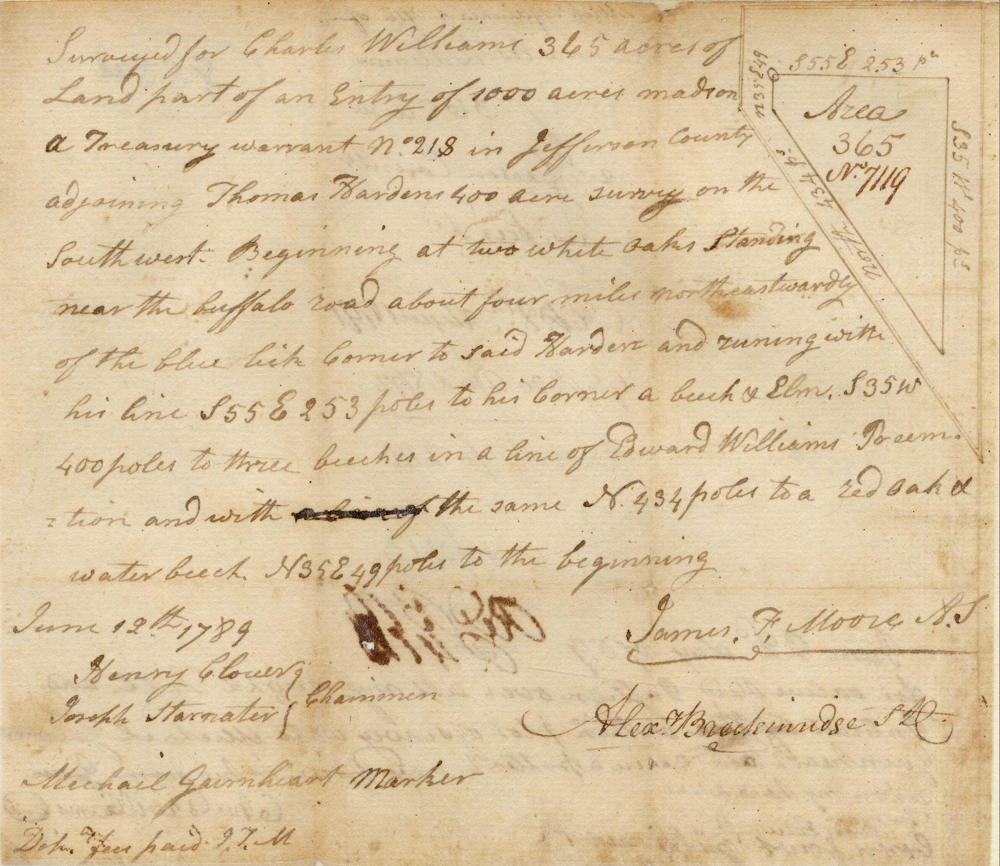 Surveyed for Charles Williams 365 acres of
Land part of an Entry of 1000 acres made on
a Treasury warrant No. 218 in Jefferson County
adjoining Thomas Hardens 400 acre survey on the
Southwest. Beginning at two white oaks standing
near the buffalo road about four miles northeastwardly
of the blue lick Corner to said Harden and runing with
his line S55E 253 poles to his Corner a beech & Elm, S35W
400 poles to three beeches in a line of Edward Williams Preem-
=tion and with the same N. 434 poles to a red oak &
water beech. N35E 49 poles to the beginning
June 12th 1789
James. F. Moore A.S
Henry Clower
Joseph Starwater } Chainmen
Alexr. Breckinridge S
Michail Gairnheart Marker
fees paid J. F. M
S55E 253 ps
N35E49
Area
365
No. 7119
S35W 400 ps
North 434 ps